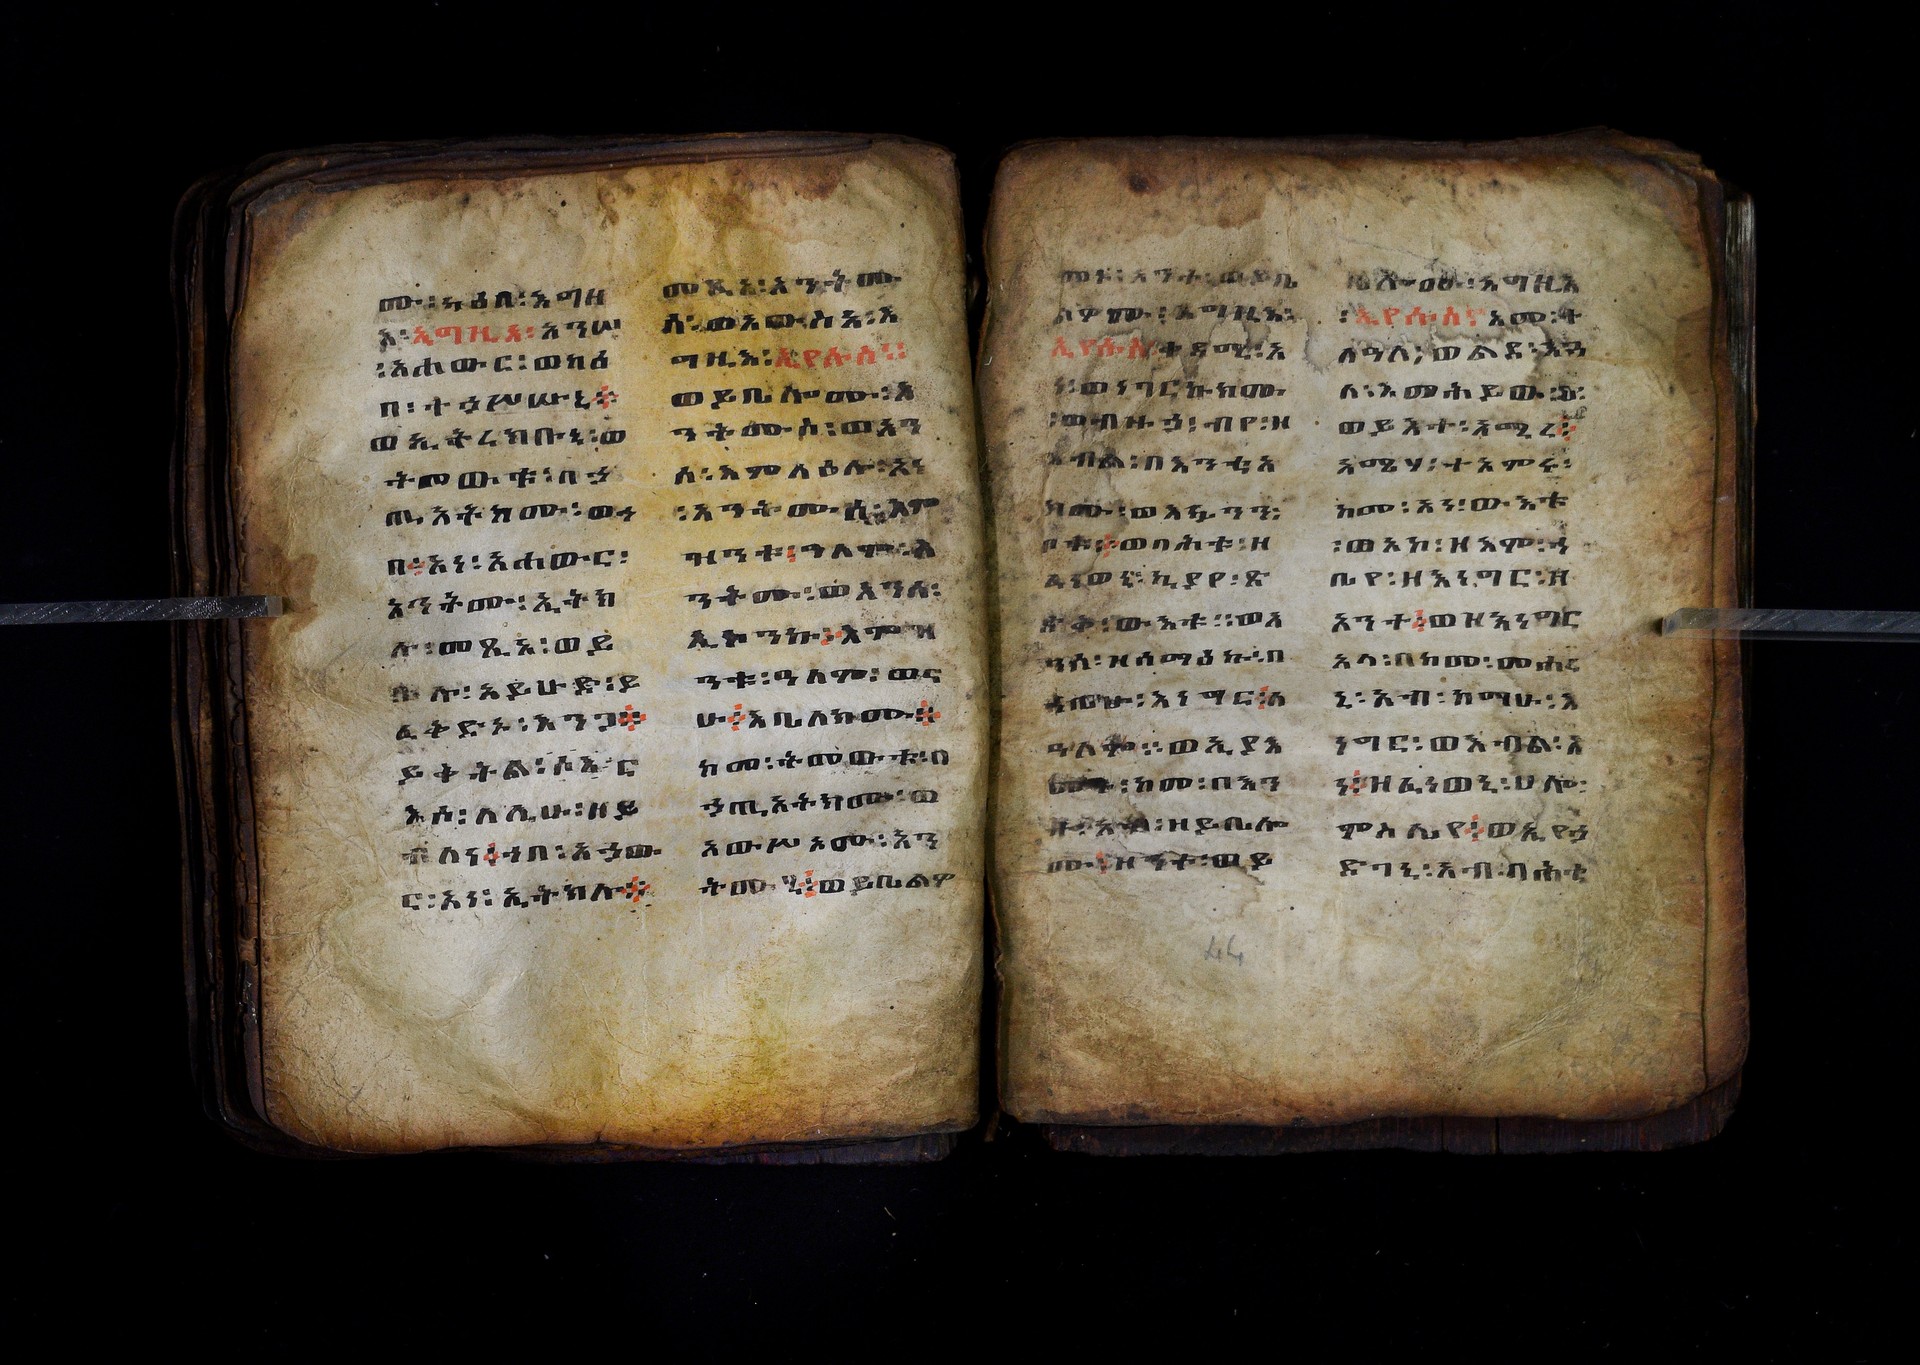 ሙ፡ካዕበ፡እግዘ
እ፡እግዚእ፡አንሠ
፡አሐውር፡
በ፡ተኃሥሡኒ፨
ወኢትረክቡኒ፡ወ
ትመውቱ፡በኃ
ጢአትክሙ፡ወኀ
በ፡አነ፡አሐውር፡
አንትሙ፡ኢትክ
ሉ፡መጺአ፡ወይ
ቤሉ፡አይሁድ፡ይ
ፈቅድኑ፡እንጋ፨
ይቅትል፡
እሶ፡ለሊሁ፡ዘይ
ብለነ፡ኀበ፡አኃው
ር፡አነ፡ኢትክሉ፨
መጺአ፡አንትሙ
ሰ፡ወአውስአ፡እ
ግዚእ፡ኢየሱስ፡
ወይቤሎሙ፡አ
ንትሙሰ፡ወእን
ለ፡እምላዕሉ፡አነ
፡አንትሙሰ፡እም
ዝንቱ፡ዓለም፡አ
ንትሙ፡ወአንሰ፡
ኢኮንኩ፡እምዝ
ንቱ፡ዓለም፡ወና
ሁ፡እቤለክሙ፨
ከመ፡ትመውቱ፡በ
ኃጢአትክሙ፡ወ
አውሥአሙ፡አን
ትሙሂ፡ወይቤልዎ
መኑ፡አንተ፡ወይቤ
ሎሙ፡እግዚእ፡
ኢየሱስ፡ቀዳሚ፡አ
ነ፡ወነገርኩክሙ
፡ወብዙኃ፡ብየ፡ዘ
እብል፡በእንቲአ
ክሙ፡ወእኴንን፡
ወባሕቱ፡ዘ
ፈነወኒ፡ኪያየ፡ጽ
ድቅ፡ውእቱ፡፡ወአ
ንሰ፡ዘሰማዕኩ፡በ
ኀቤሁ፡እነግር፡ለ
ዓለም፡፡ወኢያእ
ከመ፡በእን
ተ፡አብ፡ዘይቤሎ
ሙ፡ዝንተ፡ወይ
ቤሎሙ፡እግዚእ
፡ኢየሱስ፡አመ፡ት
ሰዓለ፡ወልደ፡እጓ
ለ፡እመሕያው፡
ወይእተ፡አሚረ፡
አሜሃ፡ተአምሩ፡
ከመ፡አነ፡ውእቱ
፡ወአከ፡ዘእም፡ኀ
ቤየ፡ዘእነግር፡ዘ
እንተ፡ወዝእነግር
አላ፡በከመ፡መሐረ
ኒ፡አብ፡ከማሁ፡እ
ነግር፡ወእብል፡እ
ነ፡ዘፈነወኒ፡ሀሎ፡
ምስሌየ፡ወኢየኃ
ድገኒ፡አብ፡ባሕቲ
44